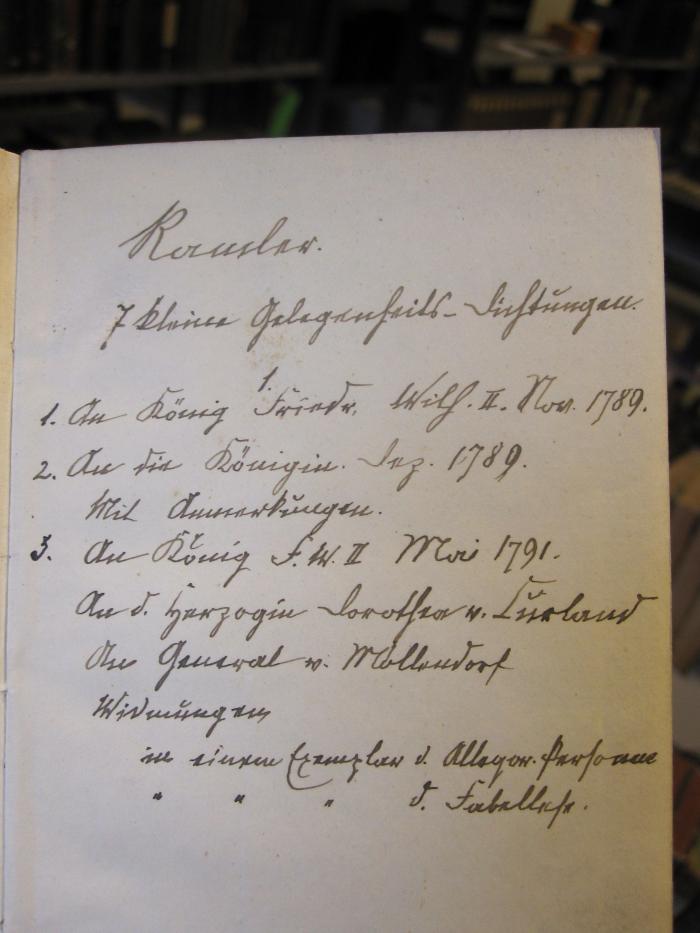 Ramler.
7 kleine Gelegenheits-Dichtungen.
1.
1. An König Friedr. Wilh. II. Nov. 1789.
2. An die Königin. Dez. 1789.
Mit Anmerkungen.
3. An König F. W. II Mai 1791.
An d. Herzogin Dorothea v. Curland
An General v. Möllendorf
Widmungen
in einem Exemplar d. Allegor. Personen
" " " d. Fabellese.